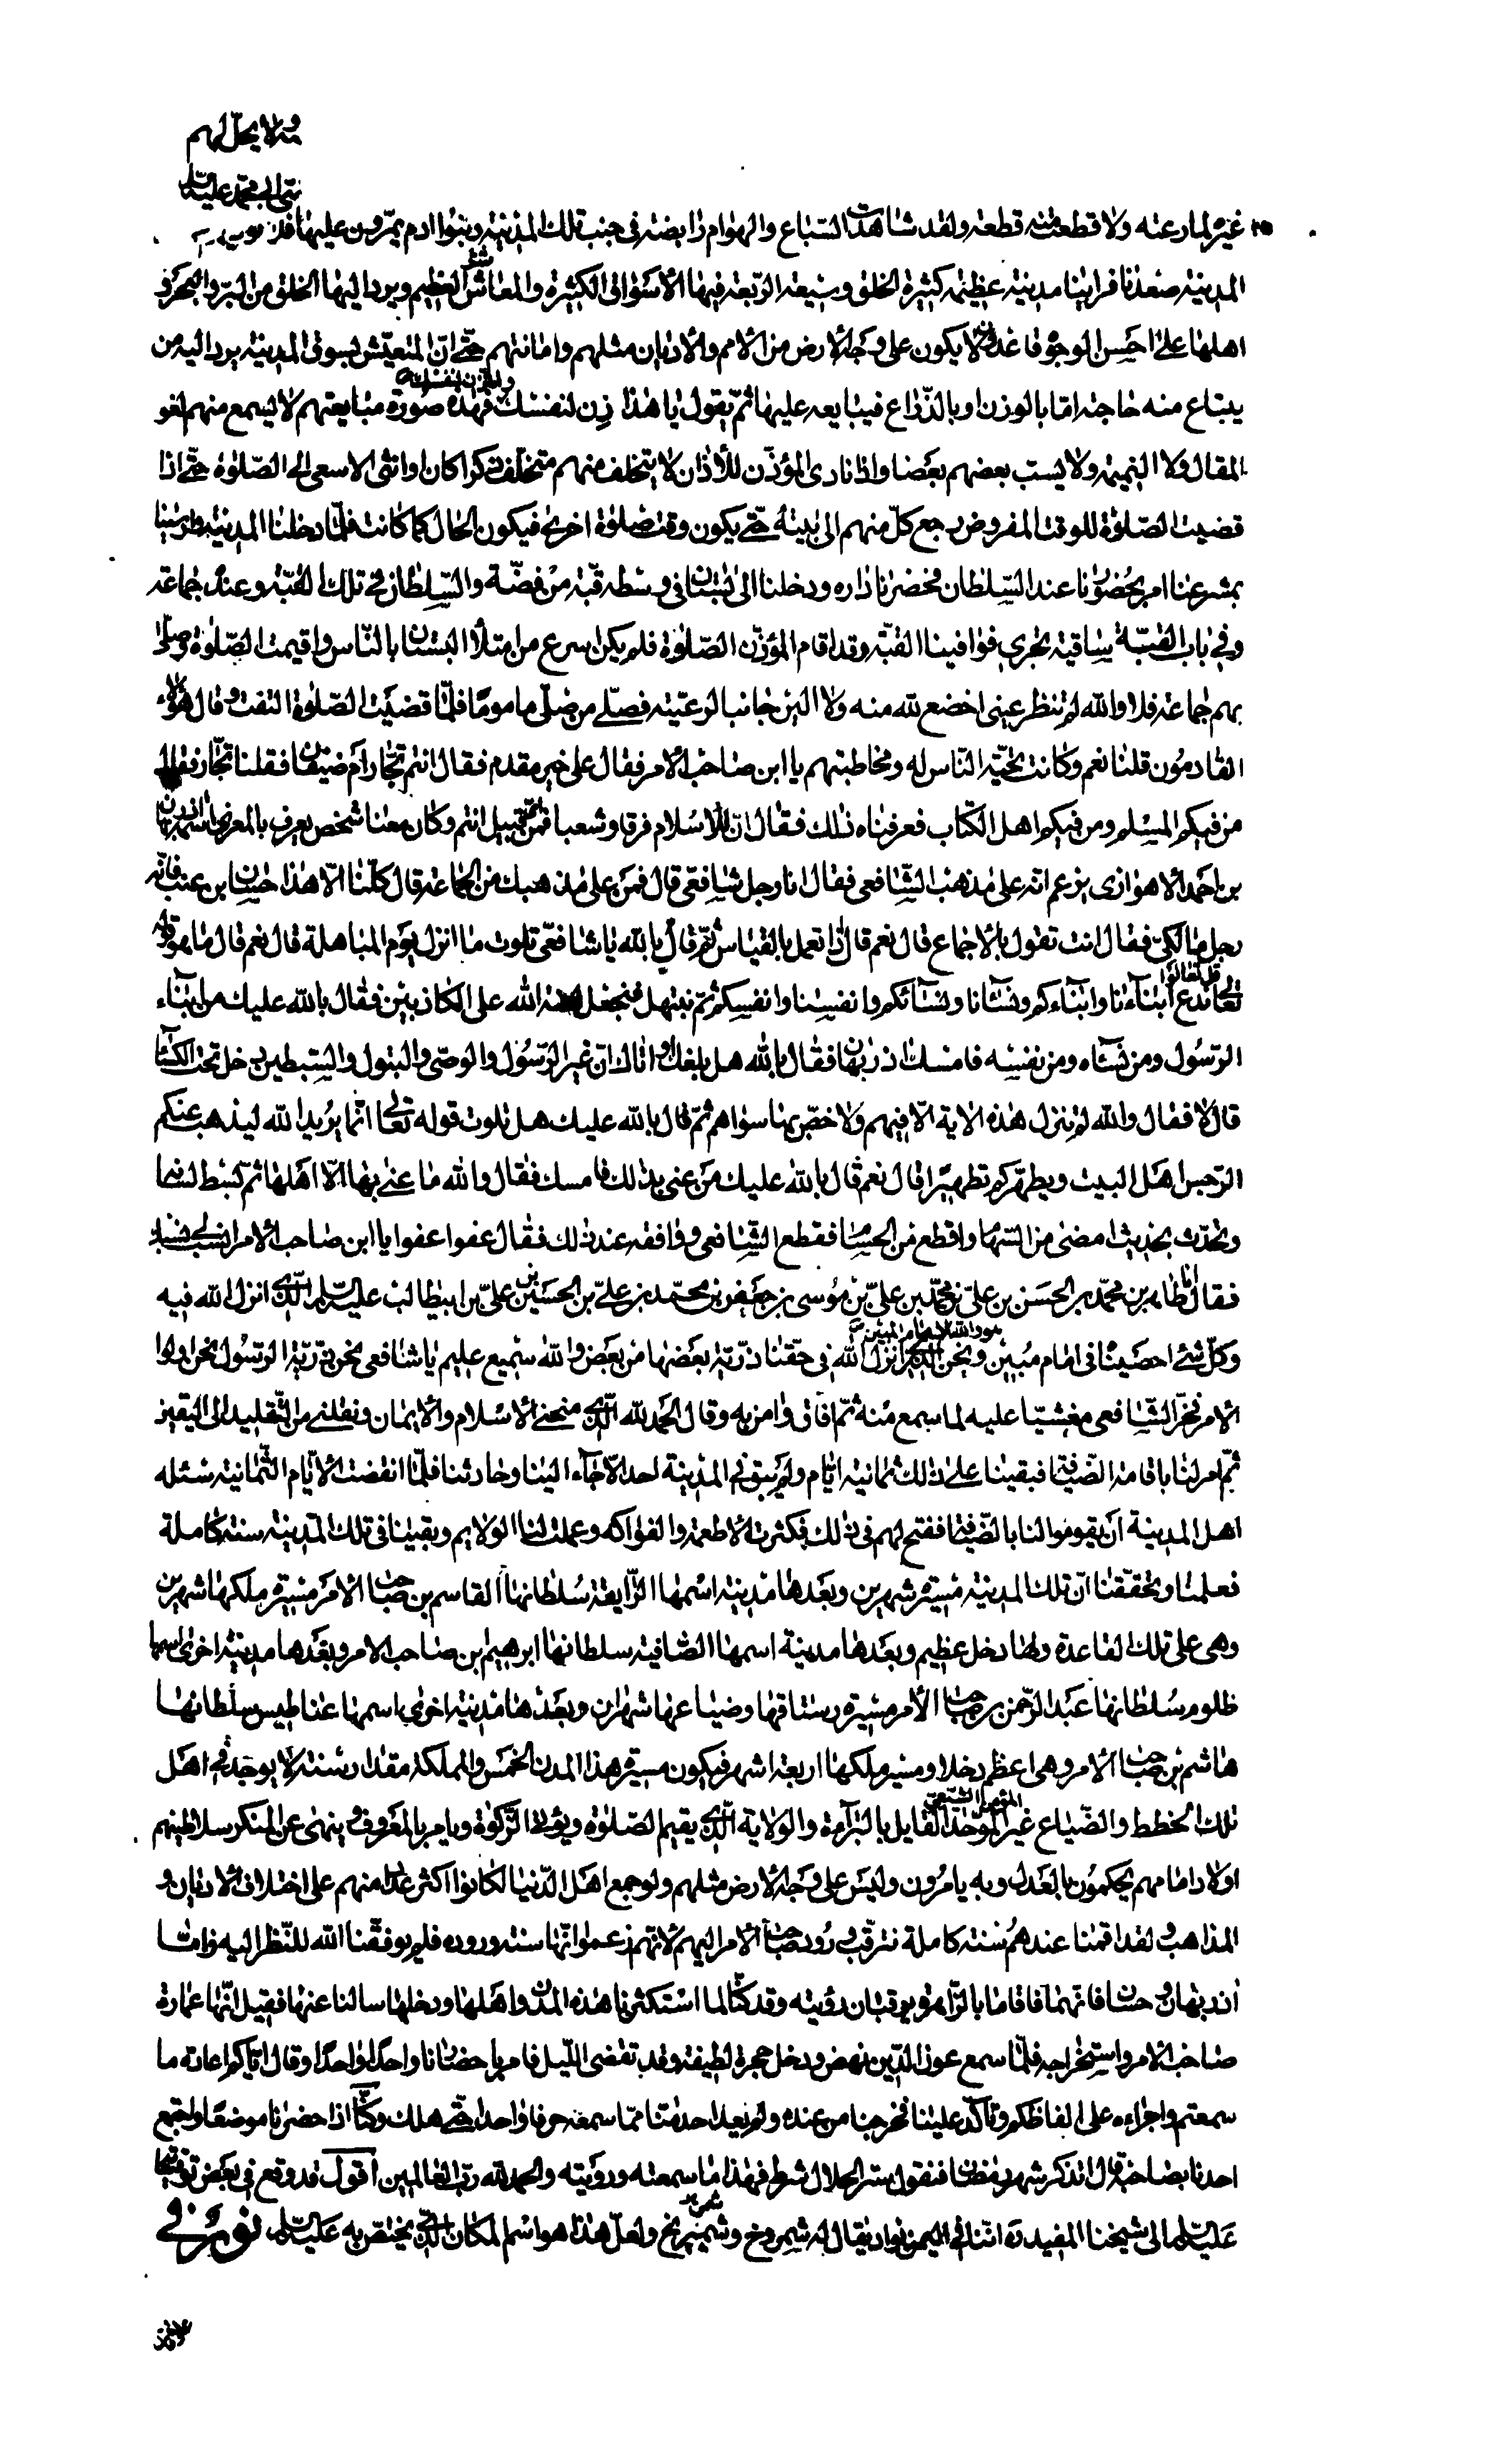 ولا يحل لهم
غير المارعنه ولا قطعت منه قطعة ولقد شاهدت السباع والهوام رابضة في جنب تلك المدينة وبنوا ادم يمرون عليها فلا
المدينة صعدنا فراينا مدينة عظيمة كثيرة الخلق وسيعة الربعة فيها الأسواق الكثيرة والمعاش العظيم ويرد اليها الخلق من البر والبحر و
اهلها على احسن الوجوه قاعدة لا يكون على وجه الأرض من الأمم والأديان مثلهم وامانتهم حتى ان المتعيش بسوق المدينة يرد اليه من
يبتاع منه حاجة اما بالوزن او بالذراع فيبايعه عليها ثم يقول يا هذا زن لنفسك فهذه صورة مبايعتهم لا يسمع منهم لغو
المقال ولا النميمة ولا يسب بعضهم بعضا واذا نادى المؤذن للأذان لا يتخلف منهم متخلف ذكرا كان او انثى الا سعى الى الصلوة حتى اذا
قضيت الصلوة للوقت المفروض رجع كل منهم الى بيته حتى يكون وقت صلوة اخرى فيكون الحال كما كانت فلما دخلنا المدينة وارسينا
بمشرعنا امر بحضورنا عند السلطان فحضرنا داره ودخلنا الى بستان في وسطه قبة من فضة والسلطان في تلك القبة وعنده جماعة
وفي باب القبة ساقية تجري فوافينا القبة وقد اقام المؤذن الصلوة فلم يكن اسرع من امتلأ البستان بالناس واقيمت الصلوة وصلى
بهم جماعة فلا والله لم تنظر عيني اخضع لله منه ولا الين جانبا لرعيته فصلى من صلى ماموما فلما قضيت الصلوة التفت وقال هؤلاء
القادمون قلنا نعم وكانت تحية الناس له ومخاطبتهم يا ابن صاحب الأمر فقال على خير مقدم فقال انتم تجار ام ضيفان فقلنا تجار فقال
من فيكم المسلم ومن فيكم اهل الكتاب فعرفناه ذلك فقال ان للاسلام فرقا وشعبا فمن اي قبيل انتم وكان معنا شخص يعرف بالمعرف
بن احمد الاهوازى يزعم انه على مذهب الشافعي فقال انا رجل شافعي قال فمن على مذهبك من الجماعة قال كلنا الا هذا حسان بن عنب فانه
رجل مالكي فقال انت تقول بالاجماع قال نعم قال اذا تعمل بالقياس ثم قال بالله يا شافعي تلوت ما انزل يوم المباهلة قال نعم قال ما هو قوله
تعالى قل تعالوا ندع ابناءنا وابناءكم ونساءنا ونساءكم وانفسنا وانفسكم ثم نبتهل فنجعل لعنة الله على الكاذبين فقال بالله عليك من ابناء
الرسول ومن نساءه ومن نفسه فامسك فقال بالله هل بلغك او اتاك ان غير الرسول والوصي والبتول والسبطين دخل تحت الكساء
قال لا فقال والله لم تنزل هذه الاية الا فيهم ولا خص بها سواهم ثم قال بالله عليك هل تلوت قوله تعالى انما يريد الله ليذهب عنكم
الرجس اهل البيت ويطهركم تطهيرا قال نعم قال بالله عليك من عنى بذلك فامسك فقال والله ما عنى بها الا اهلها ثم بسط لسانه
وتحدث بحديث امضى من السهام واقطع من الحسام فقطع الشافعي ووافقه عند ذلك فقال عفوا عفوا يا ابن صاحب الامر انسب لي نسبك
فقال انا طاهر بن محمد بن الحسن بن علي بن محمد بن علي بن موسى بن جعفر بن محمد بن علي بن الحسين بن علي بن ابيطالب عليه السلم الذي انزل الله فيه
وكل شئ احصيناه في امام مبين ونحن الذين انزل الله في حقنا ذرية بعضها من بعض والله سميع عليم يا شافعي نحن ذرية الرسول نحن اولوا
الامر فخر الشافعي مغشيا عليه لما سمع منه ثم افاق وامن به وقال الحمد لله الذي منحني الاسلام والايمان ونقلني من التقليد الى اليقين
ثم امر لنا باقامة الضيافة فبقينا على ذلك ثمانية ايام ولم يبق في المدينة احد الا جاء الينا وحادثنا فلما انقضت الأيام الثمانية سئله
اهل المدينة ان يقوموا لنا بالضيافة ففتح لهم في ذلك فكثرت الاطعمة والفواكه وعملت لنا الولايم وبقينا في تلك المدينة سنة كاملة
فعلمنا وتحققنا ان تلك المدينة مسيرة شهرين وبعدها مدينة اسمها الرايقة سلطانها القاسم بن صاحب الأمر مسيرة ملكها شهرين
وهي على تلك القاعدة ولها دخل عظيم وبعدها مدينة اسمها الصافية سلطانها ابرهيم بن صاحب الامر وبعدها مدينة اخرى اسمها
ظلوم سلطانها عبد الرحمن بن صاحب الأمر مسيرة رستاقها وضياعها شهران وبعدها مدينة اخرى اسمها عناطيس سلطانها
هاشم بن صاحب الامر وهي اعظم دخلا ومسيرة ملكها اربعة اشهر فيكون مسيرة هذا المدن الخمس والمملكة مقدار سنة لا يوجد في اهل
تلك الخطط والضياع غير الموحد القايل بالبراءة والولاية الذي يقيم الصلوة ويؤتى الزكوة ويامر بالمعروف وينهى عن المنكر سلاطينهم
اولاد امامهم يحكمون بالعدل وبه يامرون وليس على وجه الأرض مثلهم ولو جمع اهل الدنيا لكانوا اكثر عددا منهم على اختلاف الاديان و
المذاهب ولقد اقمنا عندهم سنة كاملة نترقب ورود صاحب الأمر اليهم لانهم زعموا انها سنة وروده فلم يوفقنا الله للنظر اليه واما
وحسان فانهما اقاما بالزاهرة يرقبان رؤيته وقد كنا لما استكثرنا هذه المدن واهلها ودخلها سالنا عنها فقيل انها عمارة
صاحب الامر واستخراجه فلما سمع عون الدين نهض ودخل حجرة لطيفة وقد تقضى الليل فامر باحضارنا واحدا واحدا وقال اياكم اعادة ما
سمعتم واجراءه على الفاظكم وتاكد علينا فخرجنا من عنده ولم يعد احد منا مما سمعه حرفا واحدا حتى هلك وكنا اذا حضرنا موضعا واجتمع
احدنا بصاحبه قال اتذكر شهر رمضان فنقول ستر الحلال شرط فهذا ما سمعته ورويته والحمد لله رب العالمين اقول قد وقع في بعض توقيعا
عليه السلم الى شيخنا المفيد ره اننا في اليمن بواد يقال له شمروخ وشمريخ ولعل هذا هو اسم المكان الذي يختص به عليه السلم نور في